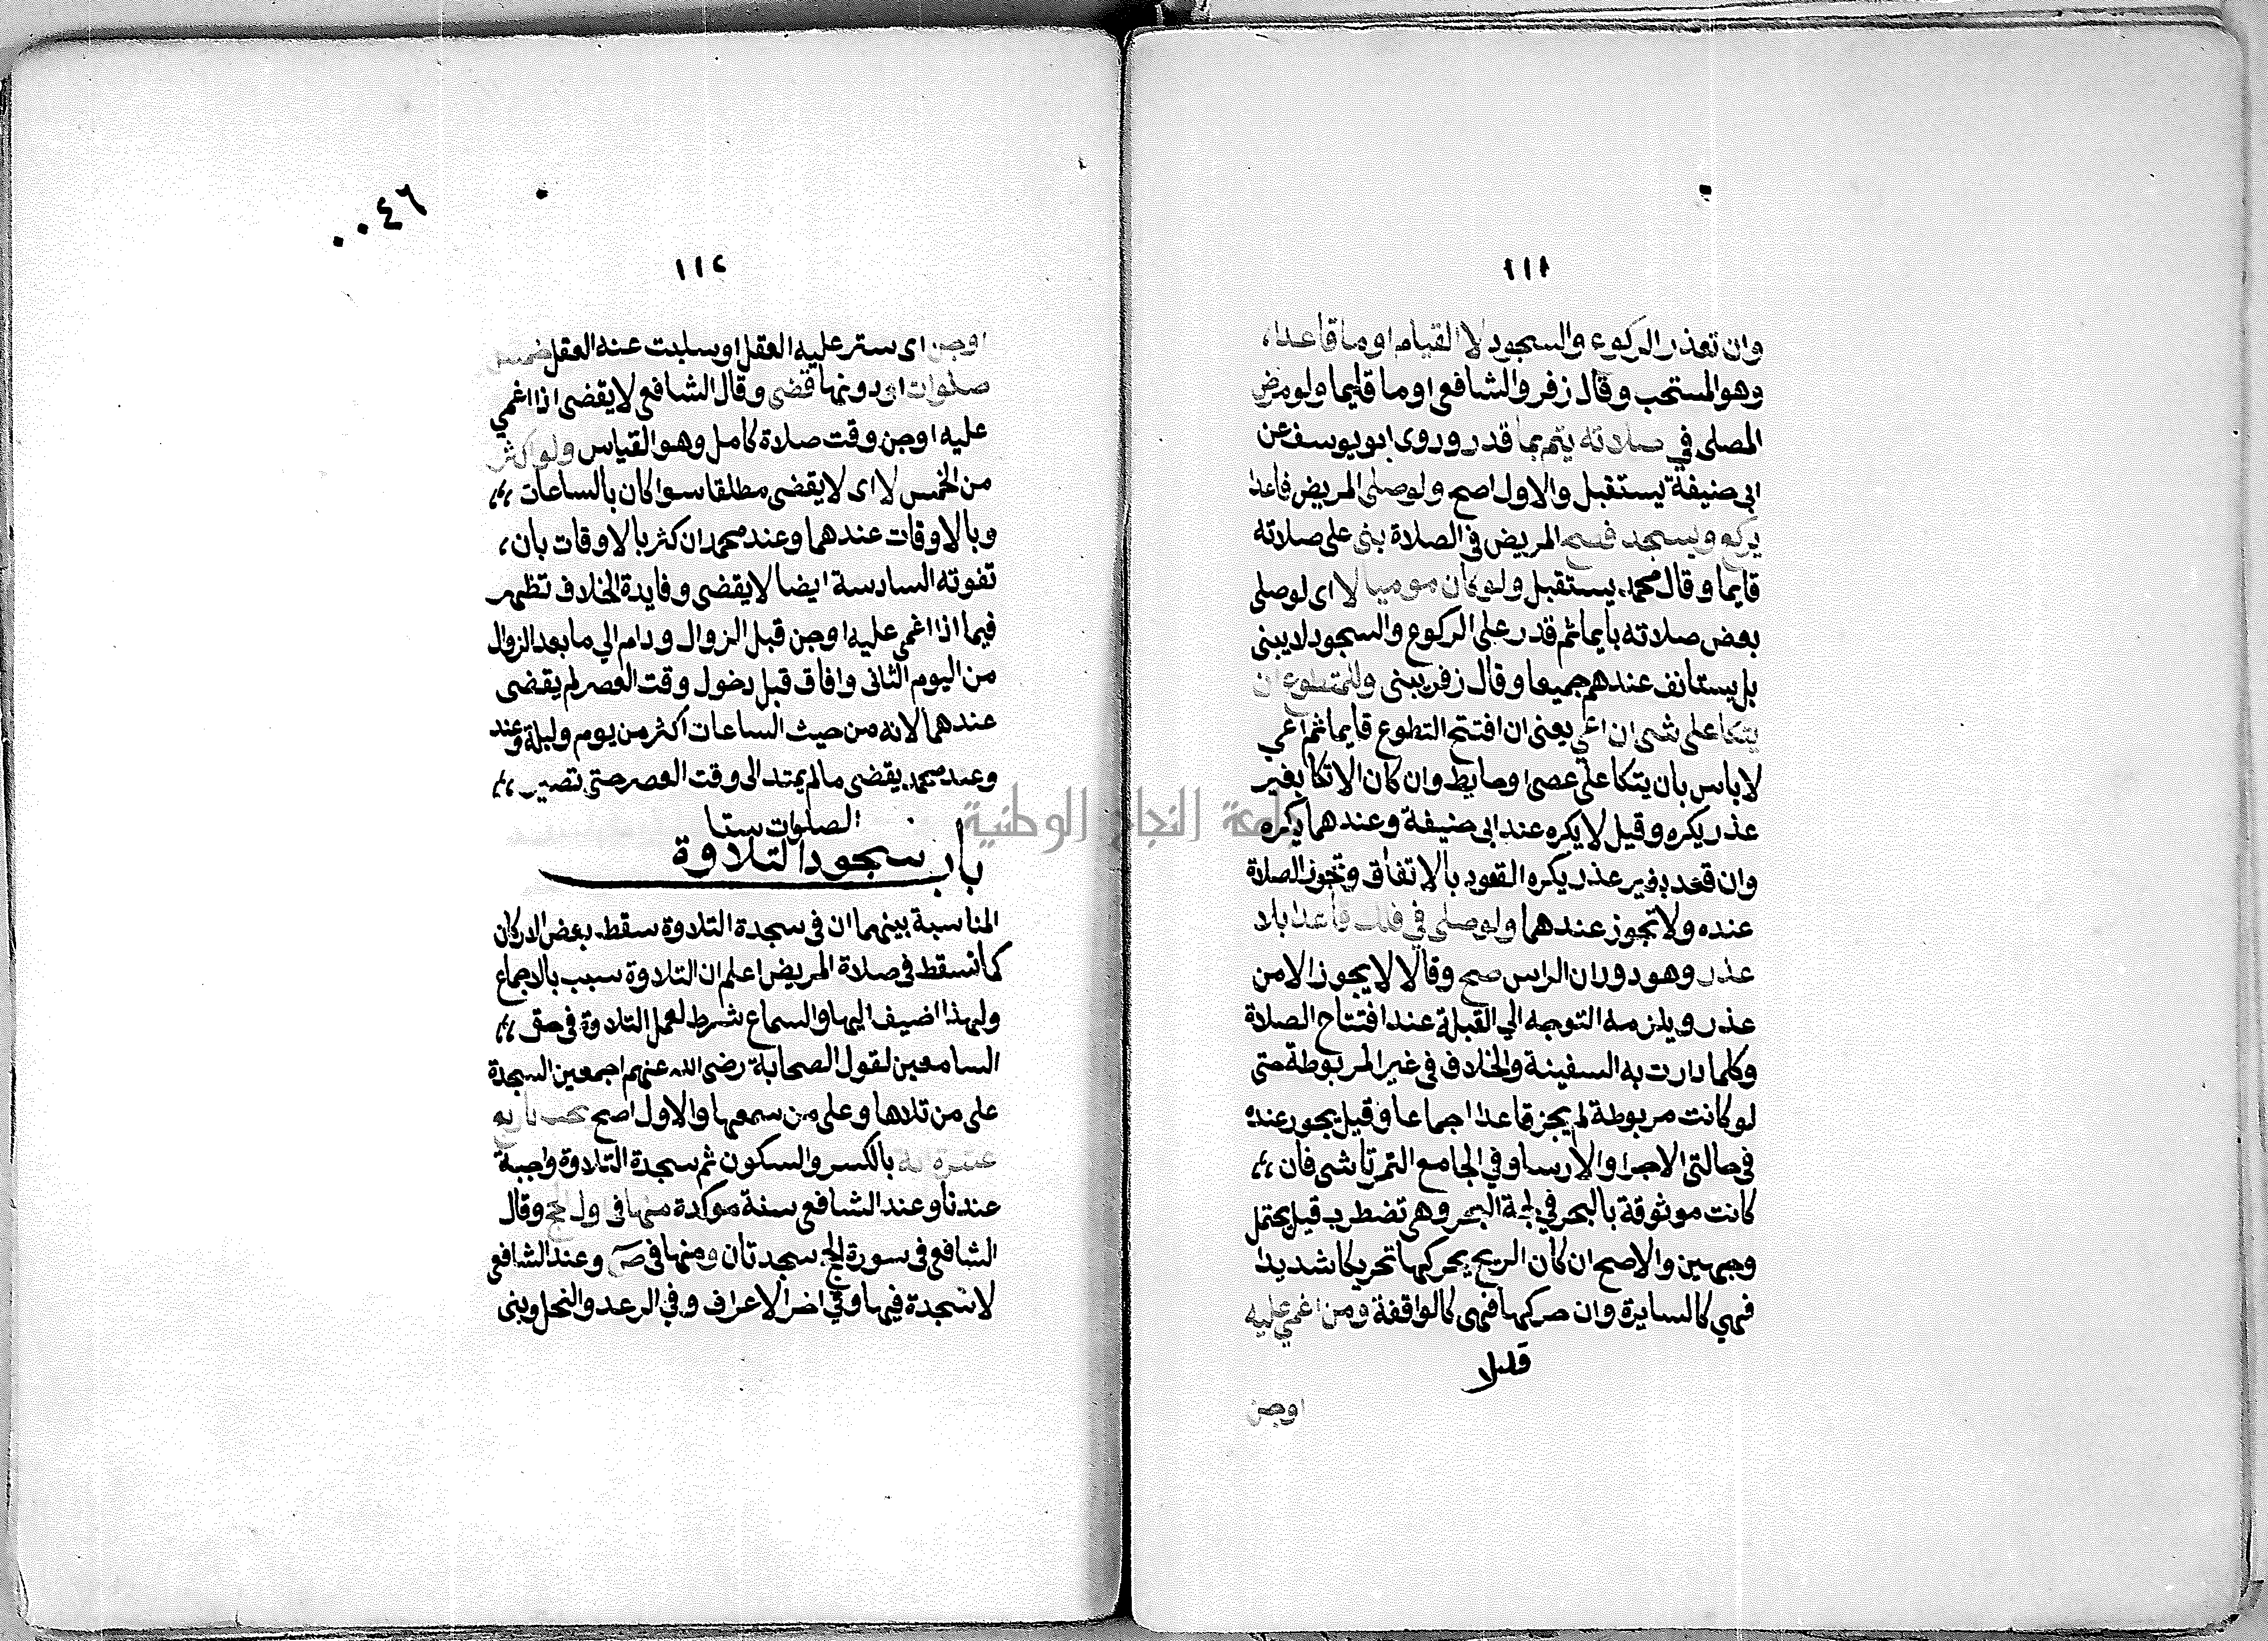 ١١١
وان تعذر الركوع والسجود لا القيام اوما قاعدا،
وهو المستحب وقال زفر والشافعي اوما قايما ولو مرض
المصلى في صلاته يتم بما قدر وروى ابو يوسف عن
ابى حنيفة يستقبل والاول اصح ولو صلى المريض قاعدا
يركع ويسجد فصح المريض فى الصلاة بنى على صلاته
قايما وقال محمد يستقبل ولو كان موميا لا اى لو صلى
بعض صلاته بايما ثم قدر على الركوع والسجود لا يبنى
بل يستانف عندهم جميعا وقال زفر يبنى وللمتطوع ان
يتكا على شى ان اعيي يعنى ان افتتح التطوع قايما ثم اعيي
لا باس بان يتكا على عصى او حايط وان كان الاتكا بغير
عذر يكره وقيل لا يكره عند ابى حنيفة وعندهما يكره
وان قعد بغير عذر يكره القعود بالاتفاق وتجوز الصلاة
عنده ولا تجوز عندهما ولو صلى في فلك قاعدا بلا
عذر وهو دوران الراس صح وقالا لا يجوز الا من
عذر ويلزمه التوجه الي القبلة عند افتتاح الصلاة
وكلما دارت به السفينة والخلاف فى غير المربوطة حتى
لو كانت مربوطة لم يجز قاعدا اجماعا وقيل يجوز عنده
فى حالتى الاجرا والارسا وفي الجامع التمرتاشى فان
كانت موثوقة بالبحر في لجة البحر وهى تضطرب قيل يحتمل
وجهين والاصح ان كان الريح يحركها تحريكا شديدا
فهي كالسايرة وان حركها فهى كالواقفة ومن اغمي عليه
قليلا
اوجن
٠٠٤٦
١١٢
اوجن اى ستر عليه العقل او سلبت عنه العقل خمس
صلوات او دونها قضى وقال الشافعى لا يقضى اذا اغمي
عليه اوجن وقت صلاة كامل وهو القياس ولو اكثر
من الخمس لا اى لا يقضى مطلقا سوا كان بالساعات
وبالاوقات عندهما وعند محمد ان كثر بالاوقات بان،
تفوته السادسة ايضا لا يقضى وفايدة الخلاف تظهر
فيما اذا اغمى عليه اوجن قبل الزوال ودام الي ما بعد الزوال
من اليوم الثانى وافاق قبل دخول وقت العصر لم يقضى
عندهما لانه من حيث الساعات اكثر من يوم وليلة وعند
وعند محمد يقضى ما لم يمتد الى وقت العصر حتى تصير
الصلوات ستا
باب سجود التلاوة
المناسبة بينهما ان فى سجدة التلاوة سقط بعض الاركان
كما تسقط فى صلاة المريض اعلم ان التلاوة سبب بالاجماع
ولهذا اضيف اليها والسماع شرط لعمل التلاوة فى حق
السامعين لقول الصحابة رضى الله عنهم اجمعين السجدة
على من تلاها وعلى من سمعها والاول اصح يجب باربع
عشرة اية بالكسر والسكون ثم سجدة التلاوة واجبة
عندنا وعند الشافعى سنة موكدة منها فى اول الحج وقال
الشافعى فى سورة الحج سجدتان ومنها فى ص وعند الشافعى
لا سجدة فيها وفي اخر الاعراف وفي الرعد والنحل وبنى
جامعة النجاح الوطنية